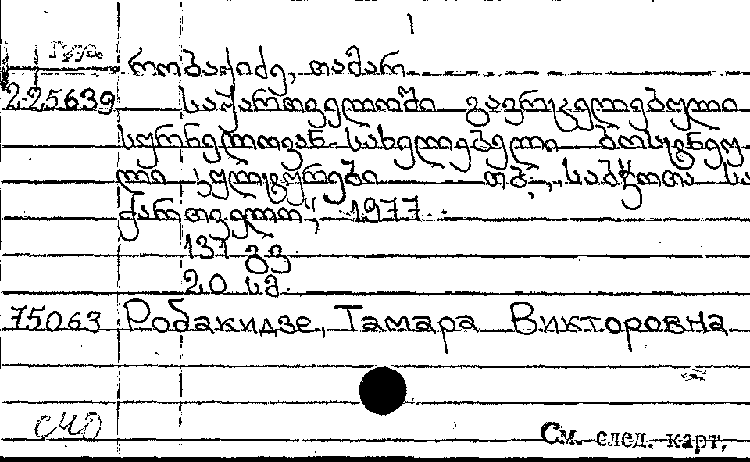 1
Груз.
რობაქიძე, თამარ
225639 საქართველოში გავრცელებული
სურნელოვან-სახელებელი ბოსტნეუ
ლი კულტურები თბ., „საბჭოთა სა
ქართველო“, 1977.
137 გვ.
20 სმ.
75063 Робакидзе, Тамара Викторовна
См. след. карт.